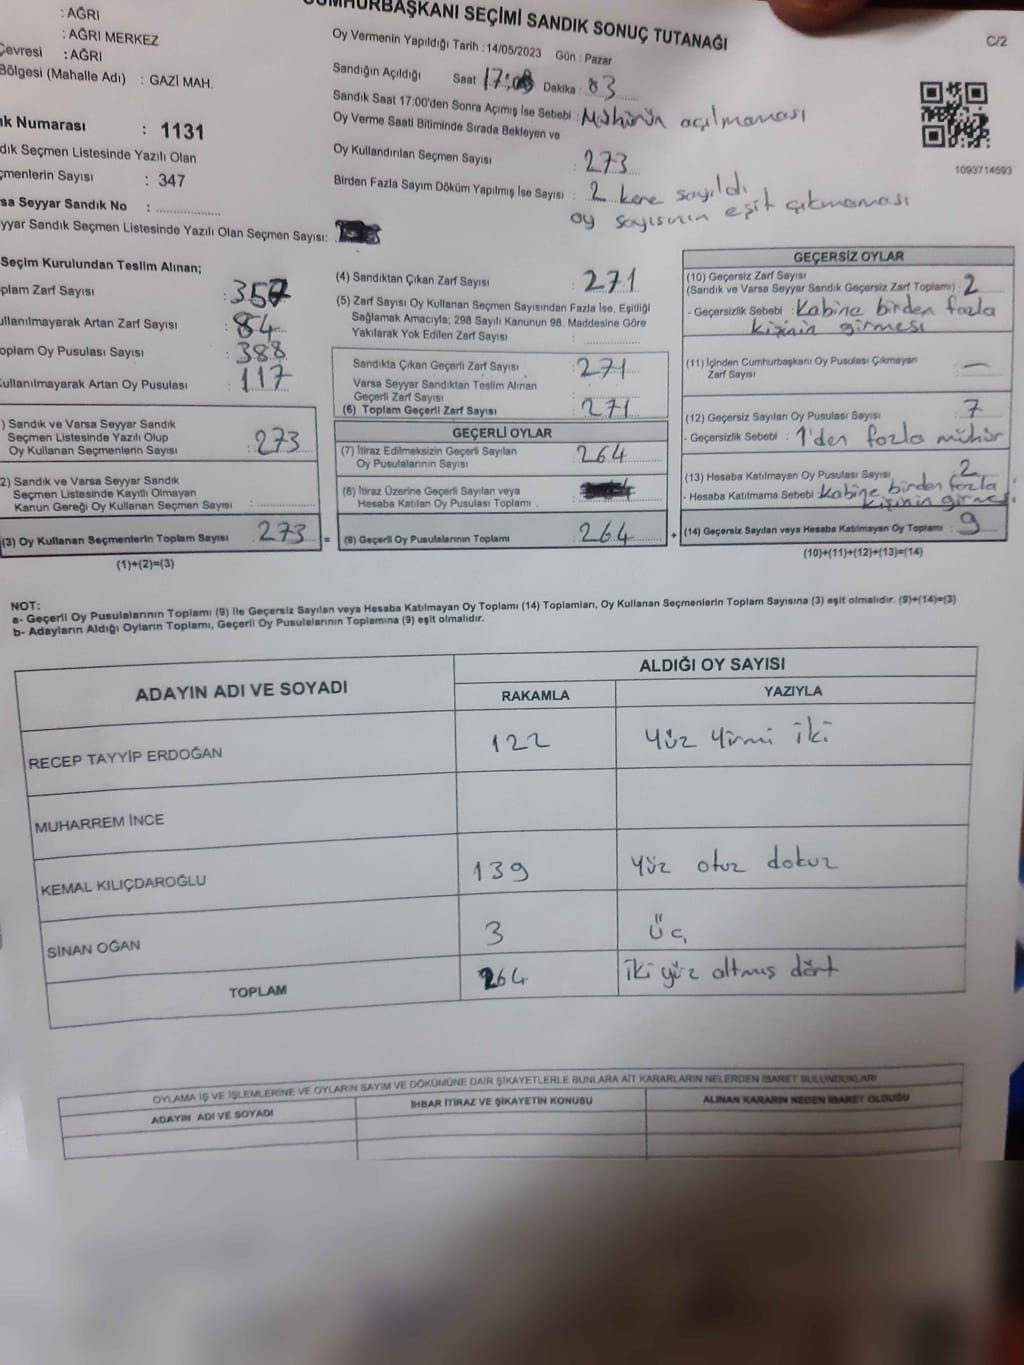 CUMHURBAŞKANI SEÇİMİ SANDIK SONUÇ TUTANAĞI
C/2
: AĞRI
: AĞRI MERKEZ
Çevresi : AĞRI
Bölgesi (Mahalle Adı) : GAZİ MAH.
Numarası : 1131
Seçmen Listesinde Yazılı Olan
Sayısı : 347
Seyyar Sandık No : ....................
Sandık Seçmen Listesinde Yazılı Olan Seçmen Sayısı:
Oy Vermenin Yapıldığı Tarih : 14/05/2023 Gün : Pazar
Sandığın Açıldığı Saat Dakika : 03
Sandık Saat 17:00'den Sonra Açımış İse Sebebi : Mührün açılmaması
Oy Verme Saati Bitiminde Sırada Bekleyen ve
Oy Kullandırılan Seçmen Sayısı : 273
Birden Fazla Sayım Döküm Yapılmış İse Sayısı : 2 kere sayıldı
oy sayısının eşit çıkmaması
1093714593
Seçim Kurulundan Teslim Alınan;
Zarf Sayısı : 357
Artan Zarf Sayısı : 84
Oy Pusulası Sayısı : 388
Artan Oy Pusulası : 117
) Sandık ve Varsa Seyyar Sandık
Seçmen Listesinde Yazılı Olup
Oy Kullanan Seçmenlerin Sayısı : 273
2) Sandık ve Varsa Seyyar Sandık
Seçmen Listesinde Kayıtlı Olmayan
Kanun Gereği Oy Kullanan Seçmen Sayısı :
(3) Oy Kullanan Seçmenlerin Toplam Sayısı : 273 =
(1)+(2)=(3)
(4) Sandıktan Çıkan Zarf Sayısı : 271
(5) Zarf Sayısı Oy Kullanan Seçmen Sayısından Fazla İse, Eşitliği
Sağlamak Amacıyla; 298 Sayılı Kanunun 98. Maddesine Göre
Yakılarak Yok Edilen Zarf Sayısı :
Sandıkta Çıkan Geçerli Zarf Sayısı : 271
Varsa Seyyar Sandıktan Teslim Alınan
Geçerli Zarf Sayısı
(6) Toplam Geçerli Zarf Sayısı : 271
GEÇERLİ OYLAR
(7) İtiraz Edilmeksizin Geçerli Sayılan
Oy Pusulalarının Sayısı : 264
(8) İtiraz Üzerine Geçerli Sayılan veya
Hesaba Katılan Oy Pusulası Toplamı
(9) Geçerli Oy Pusulalarının Toplamı : 264 +
GEÇERSİZ OYLAR
(10) Geçersiz Zarf Sayısı
(Sandık ve Varsa Seyyar Sandık Geçersiz Zarf Toplamı) : 2
- Geçersizlik Sebebi : Kabine birden fazla
kişinin girmesi
(11) İçinden Cumhurbaşkanı Oy Pusulası Çıkmayan
Zarf Sayısı : —
(12) Geçersiz Sayılan Oy Pusulası Sayısı : 7
- Geçersizlik Sebebi : 1'den fazla mühür
(13) Hesaba Katılmayan Oy Pusulası Sayısı : 2
- Hesaba Katılmama Sebebi : Kabine birden fazla
kişinin girmesi
(14) Geçersiz Sayılan veya Hesaba Katılmayan Oy Toplamı : 9
(10)+(11)+(12)+(13)=(14)
NOT:
a- Geçerli Oy Pusulalarının Toplamı (9) ile Geçersiz Sayılan veya Hesaba Katılmayan Oy Toplamı (14) Toplamları, Oy Kullanan Seçmenlerin Toplam Sayısına (3) eşit olmalıdır. (9)+(14)=(3)
b- Adayların Aldığı Oyların Toplamı, Geçerli Oy Pusulalarının Toplamına (9) eşit olmalıdır.
ADAYIN ADI VE SOYADI
ALDIĞI OY SAYISI
RAKAMLA YAZIYLA
RECEP TAYYİP ERDOĞAN 122 Yüz Yirmi iki
MUHARREM İNCE
KEMAL KILIÇDAROĞLU 139 Yüz otuz dokuz
SİNAN OĞAN 3 üç
TOPLAM 264 iki yüz altmış dört
OYLAMA İŞ VE İŞLEMLERİNE VE OYLARIN SAYIM VE DÖKÜMÜNE DAİR ŞİKAYETLERLE BUNLARA AİT KARARLARIN NELERDEN İBARET BULUNDUKLARI
ADAYIN ADI VE SOYADI İHBAR İTİRAZ VE ŞİKAYETİN KONUSU ALINAN KARARIN NEDEN İBARET OLDUĞU